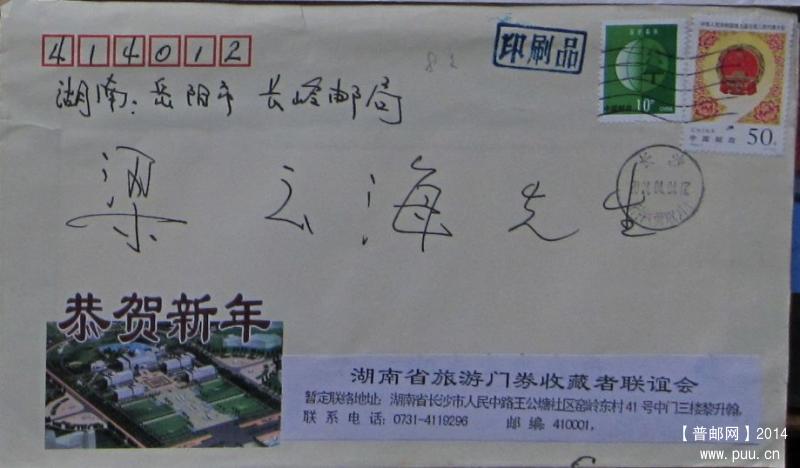 414012
印刷品
湖南:岳阳市 长岭邮局
梁云海先生
10分
中国邮政
CHINA
中国邮政
50分
长沙
恭贺新年
湖南省旅游门券收藏者联谊会
暂定联络地址: 湖南省长沙市人民中路王公塘社区窑岭东村41号中门三楼黎升翰。
联系电话: 0731-4119296 邮编: 410001。
【普邮网】2014
www.puu.cn